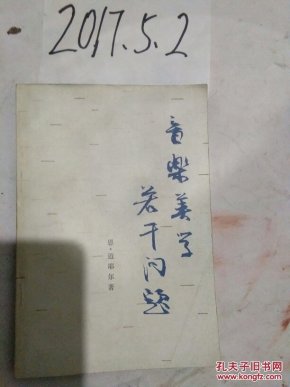 2017.5.2
音樂美学
若干问题
恩·迈耶尔著
孔夫子旧书网